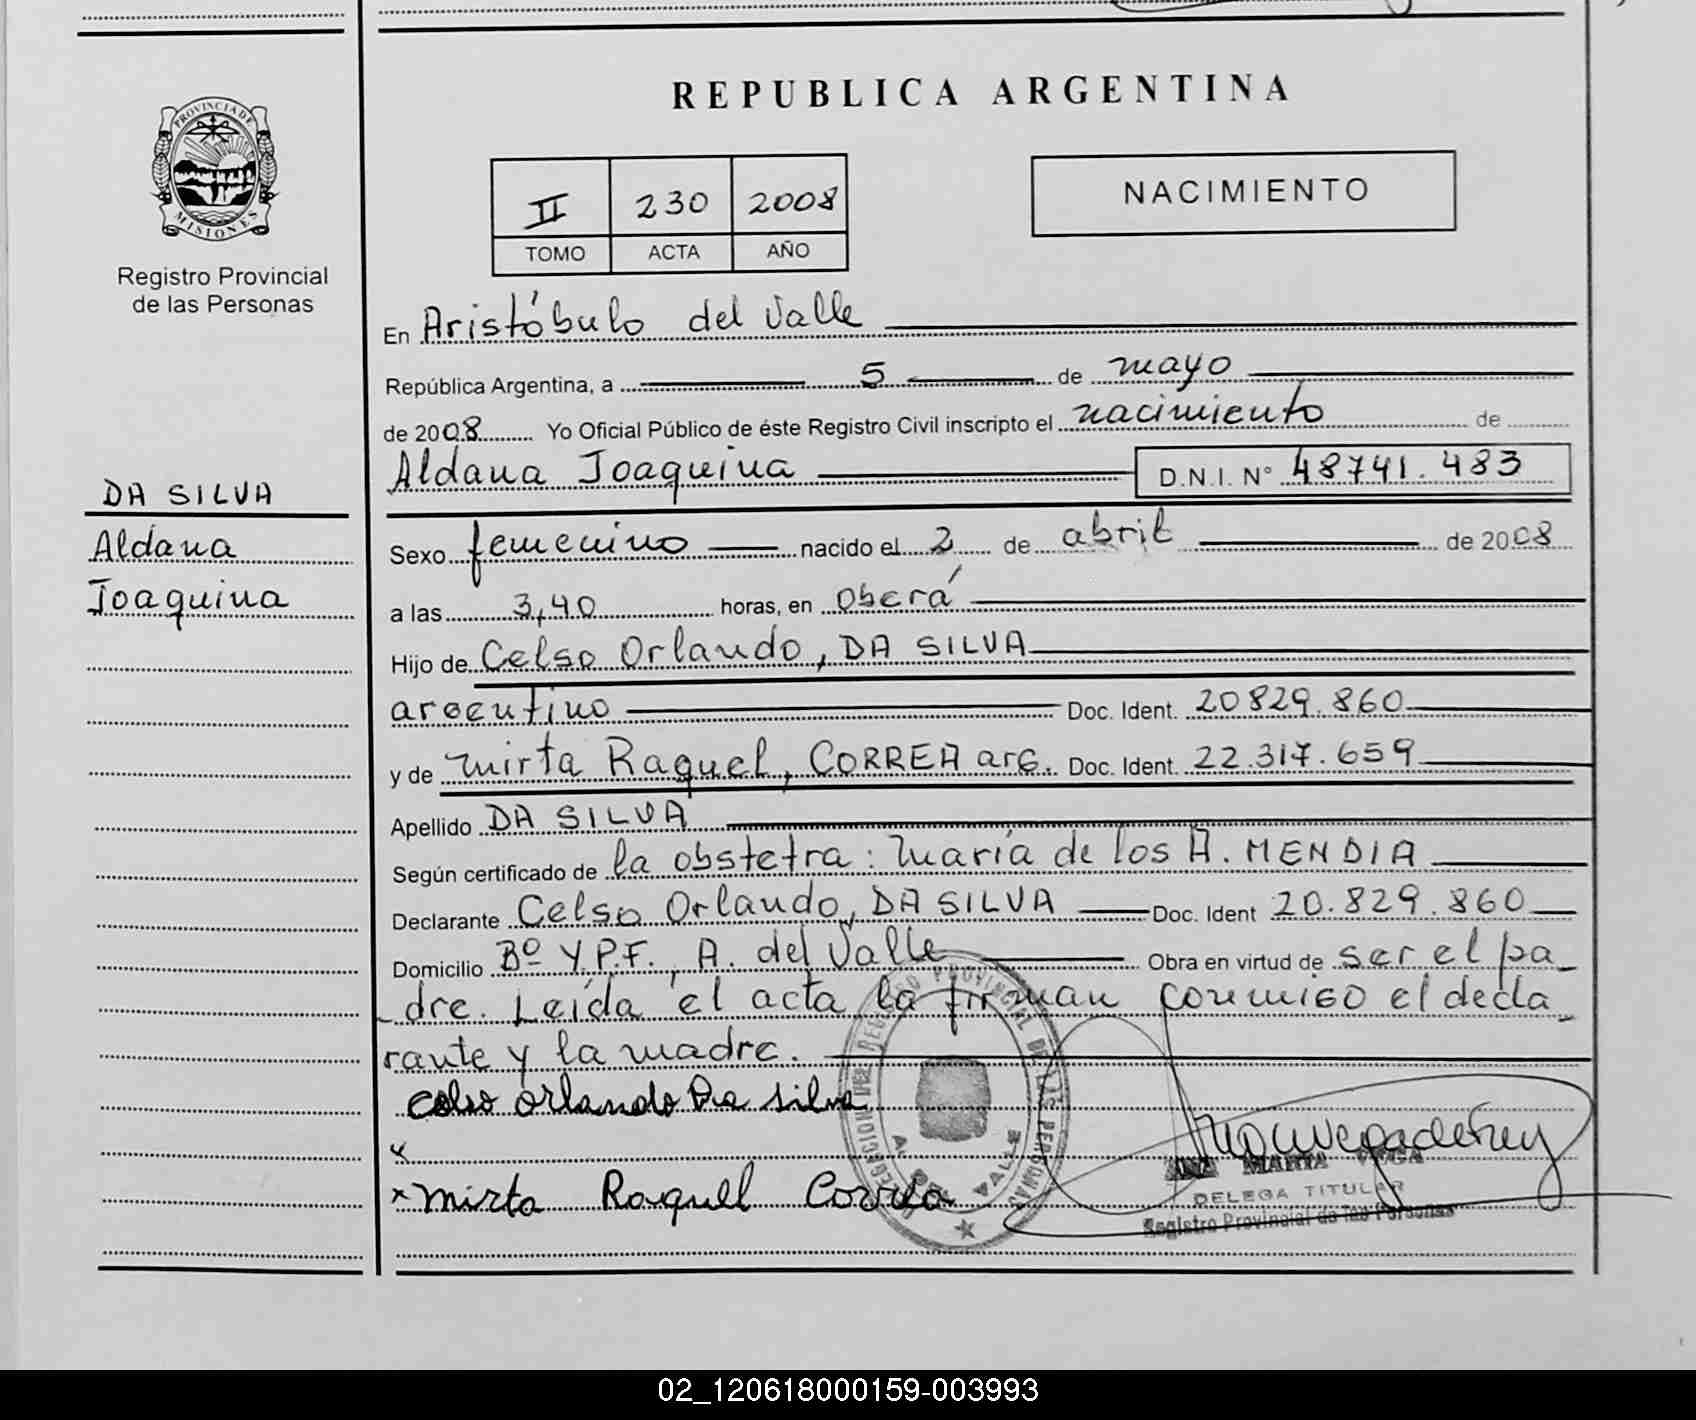 REPUBLICA ARGENTINA
PROVINCIA DE
MISIONES
Registro Provincial
de las Personas
II 230 2008
TOMO ACTA AÑO
NACIMIENTO
En Aristóbulo del Valle
República Argentina, a 5 de mayo
de 2008 Yo Oficial Público de éste Registro Civil inscripto el nacimiento de
Aldana Joaquina D.N.I. N° 48741.483
DA SILVA
Aldana
Joaquina
Sexo femenino nacido el 2 de abril de 2008
a las 3,40 horas, en Oberá
Hijo de Celso Orlando, DA SILVA
argentino Doc. Ident. 20829.860
y de Mirta Raquel, CORREA arg. Doc. Ident. 22.317.659
Apellido DA SILVA
Según certificado de la obstetra: María de los A. MENDIA
Declarante Celso Orlando, DA SILVA Doc. Ident 20.829.860
Domicilio Bº Y.P.F., A. del Valle Obra en virtud de ser el pa_
_dre. Leída el acta la firman conmigo el decla_
rante y la madre.
celso orlando Da silva
x
x mirta Raquel Correa
REGISTRO PROVINCIAL DE LAS PERSONAS
A. DEL VALLE
ANA MARIA VEGA
DELEGA TITULAR
Registro Provincial de las Personas
02_120618000159-003993